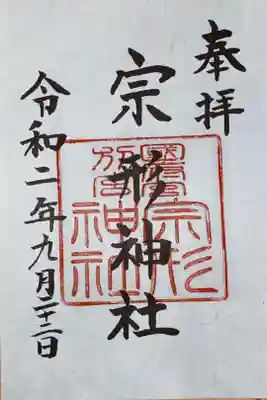 奉拝
宗形神社
令和二年九月二十二日